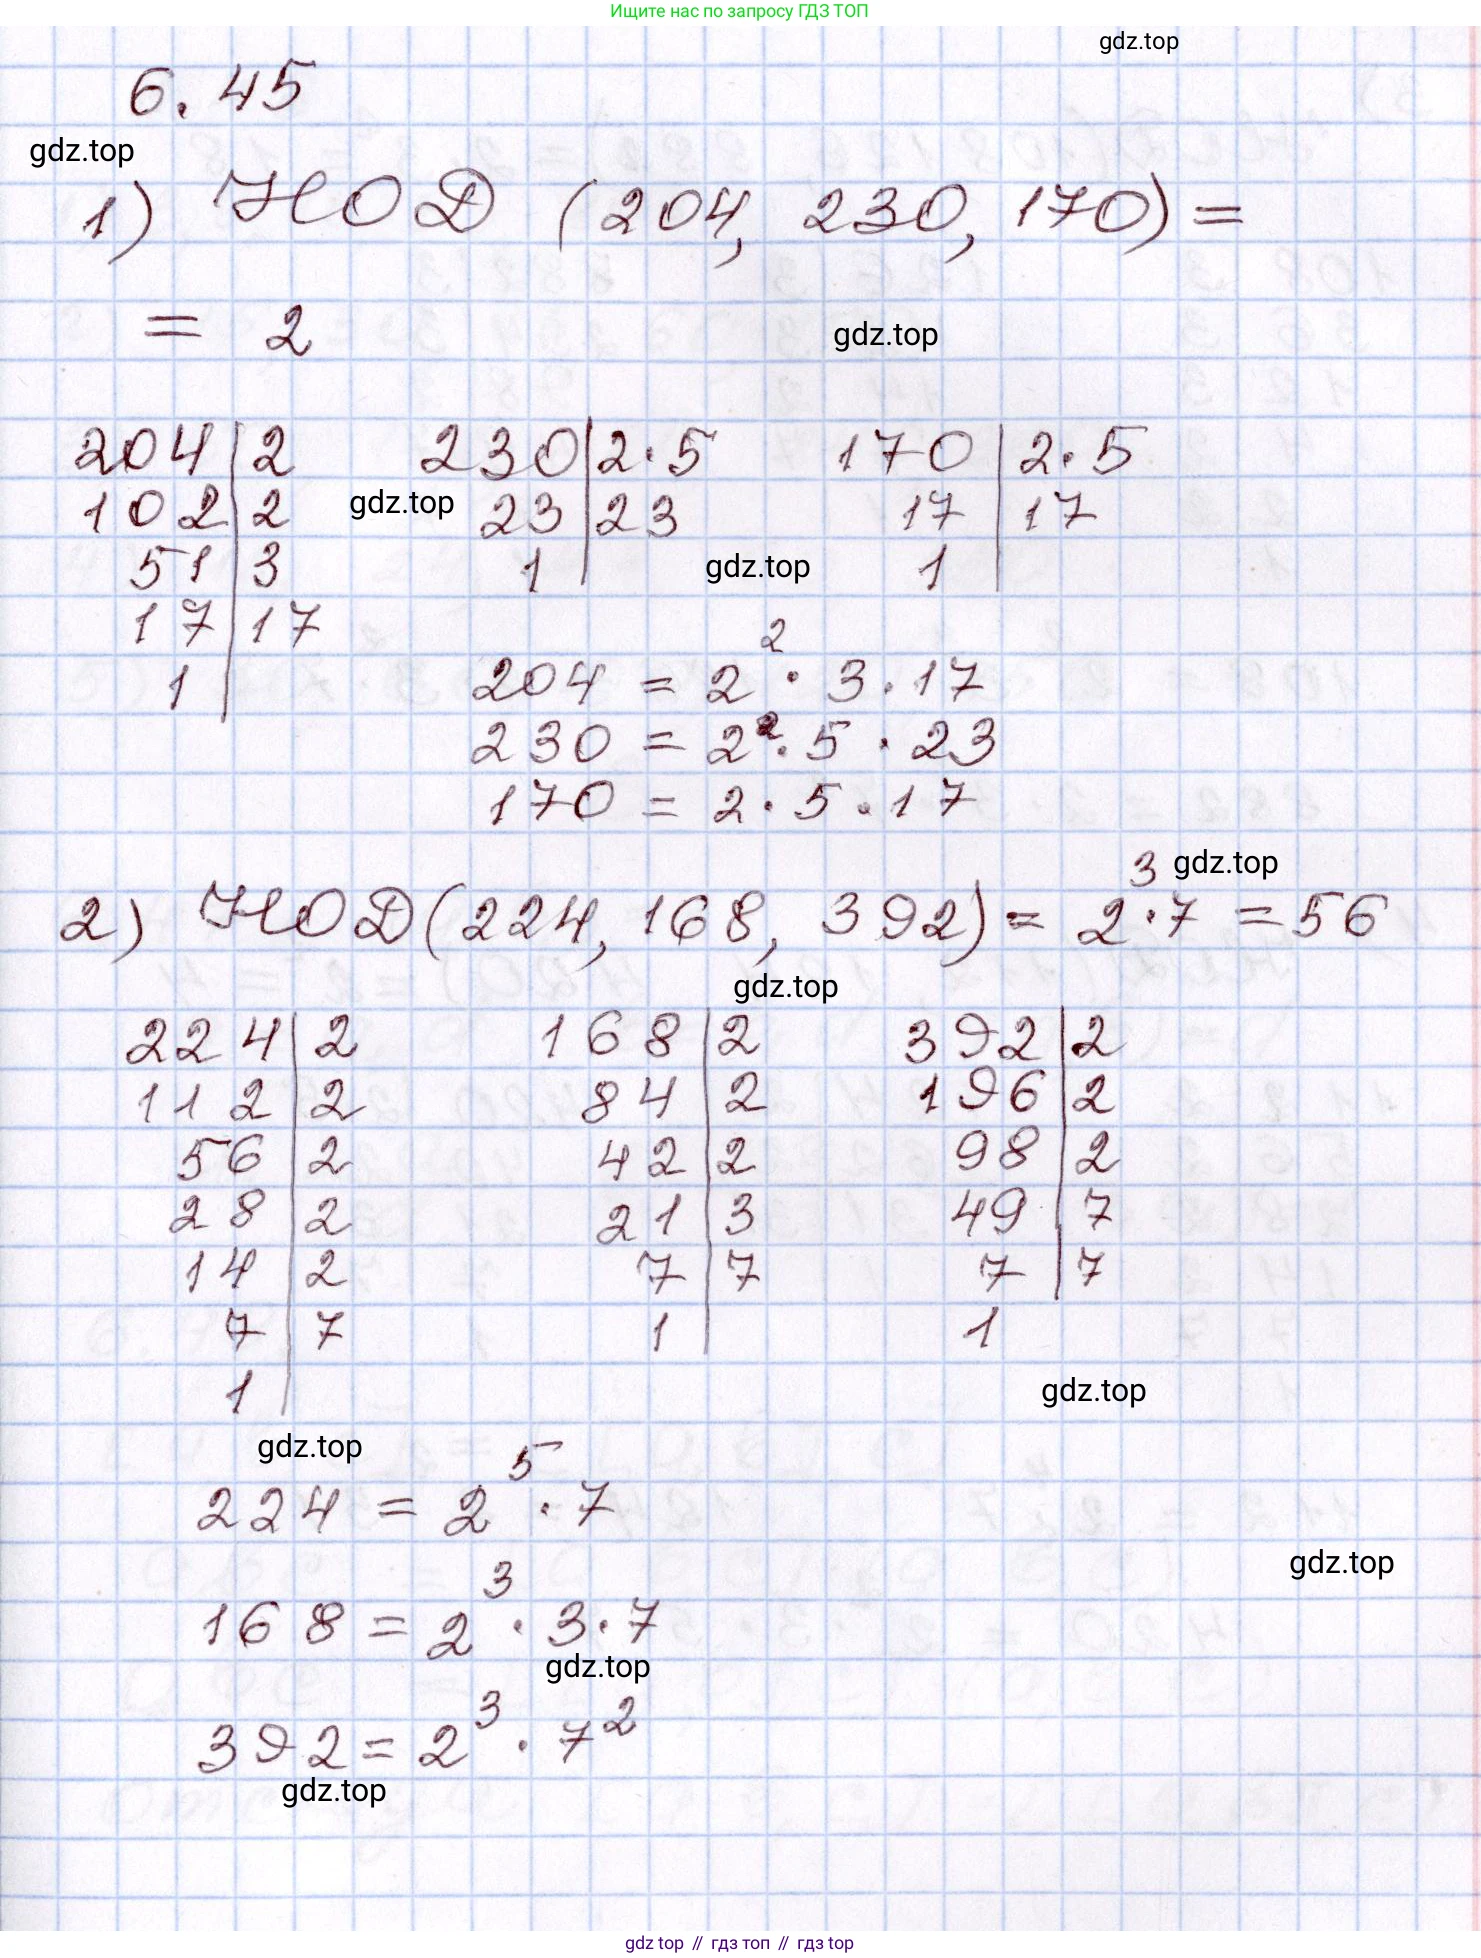 Ищите нас по запросу ГДЗ ТОП
gdz.top
6.45
gdz.top
1) НОД (204, 230, 170) =
= 2
gdz.top
204 | 2 230 | 2·5 170 | 2·5
102 | 2 gdz.top 23 | 23 17 | 17
51 | 3 1 gdz.top 1
17 | 17
1
204 = 2² · 3 · 17
230 = 2² · 5 · 23
170 = 2 · 5 · 17
gdz.top
2) НОД (224, 168, 392) = 2³ · 7 = 56
gdz.top
224 | 2 168 | 2 392 | 2
112 | 2 84 | 2 196 | 2
56 | 2 42 | 2 98 | 2
28 | 2 21 | 3 49 | 7
14 | 2 7 | 7 7 | 7
7 | 7 1 1
1
gdz.top
gdz.top
224 = 2⁵ · 7
gdz.top
168 = 2³ · 3 · 7
gdz.top
392 = 2³ · 7²
gdz.top
gdz top // гдз топ // гдз top